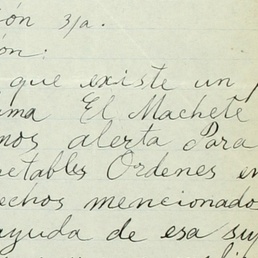 ión 3/a.
ón:
que existe un
ma El Machete
mos alerta Para
etables Ordenes en
echos mencionados
ayuda de esa su